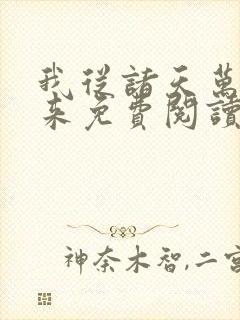 我從諸天萬
來免費閱讀
神奈木智,二宮